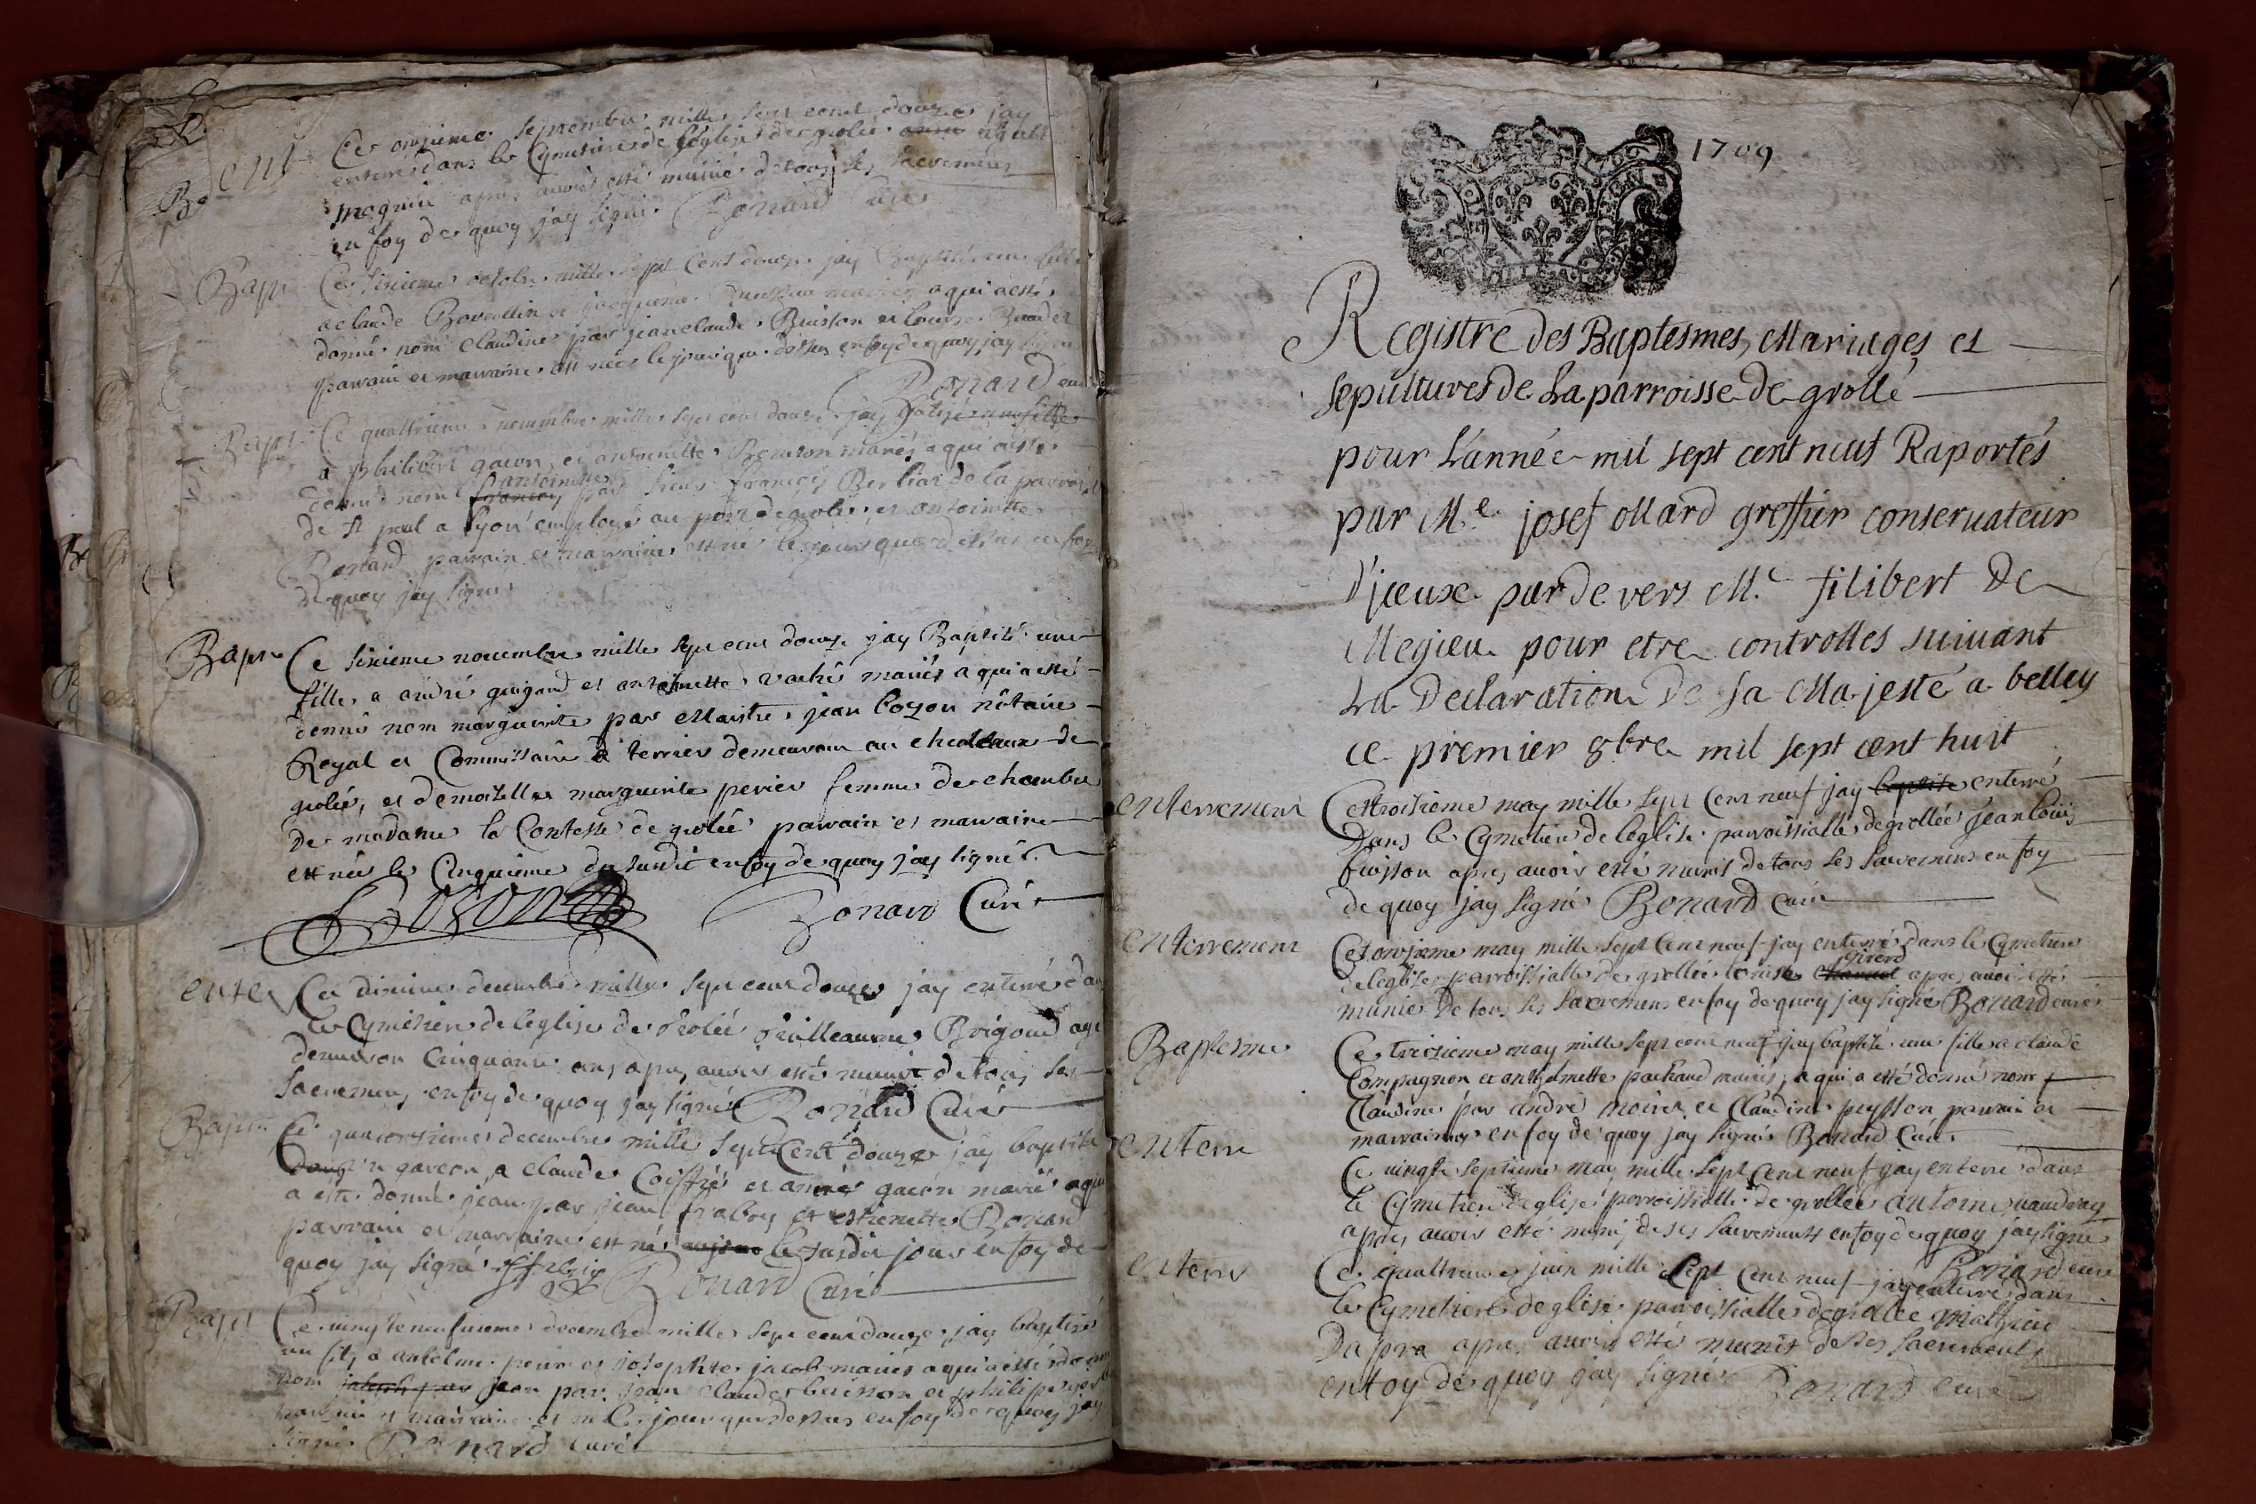 ent
Ce onzieme septembre mille sept cent douze jay
enterré dans le Cymetiere de l'église de grolée
magnin apres avoir esté munié de tous les sacremens
en foy de quoy jay signé. Bonard curé
Bapt
Ce sixieme octobre mille sept cent douze jay Baptisé une fille
a claude et jacquema mariés a qui a esté
donné nom claudine par jean claude Buisson et louise
parrain et marraine est née le jour que dessus en foy de quoy jay signé
Bonard curé
Bapt
Ce quattrieme novembre mille sept cent douze jay batisé une fille
a philibert gacon et antoinette mariés a qui a esté
antoinette
donné nom françois par sieur françois Berliat de la parroisse
de st paul a lyon employé au port de grolée et antoinette
Bonard parrain et marraine est né le jour que dessus en foy
de quoy jay signé
Bapt
Ce sixieme novembre mille sept cent douze jay Baptisé une
fille a andré guigard et antoinette vaché mariés a qui a esté
donné nom marguerite par Maistre jean boyon nôtaire
Royal et Commissaire a terrier demeurant au chasteau de
grolée, et demoiselle marguerite perier femme de chambre
de madame la Contesse de grolée parrain et marraine
est née le Cinquieme du susdit en foy de quoy jay signé
Boyon
Bonard Curé
enter
Ce dixieme decembre mille sept cent douze jay enterré dans
le Cymetiere de leglise de Grolée Guilleaume Brigoud agé
denviron Cinquante ans apres avoir esté munit de tous ses
sacremens en foy de quoy jay signé Bonard Curé
Bapt
Ce quatorzieme decembre mille sept Cent douze jay baptisé
un garcon a claude Coiffié et gacon mariés a qui
a esté donné jean par jean frabry et estienette Bonard
parrain et marraine est né le susdit jour en foy de
quoy jay signé
Bonard Curé
Bapt
Ce vingt neufvieme decembre mille sept cent douze jay baptisé
un fils a antelme et josephte jacob mariés a qui a esté donné
nom jean par jean claude buisson et philipe
parrain et marraine est né le jour que dessus en foy de quoy jay
signé Bonard curé
1709
Registre des Baptesmes, Mariages et
sepultures de La parroisse de grollé
pour L'année mil sept cent neuf Raportés
par Me. josef ollard greffier conservateur
d'jceux par devers Me filibert de
Megieu pour etre controlles suivant
La Declaration De sa Majesté a belley
ce premier 8bre mil sept cent huit
enterrement
Ce troisieme may mille sept Cent neuf jay baptisé enterré
Dans le Cymetiere de leglise parroissialle de grollée Jean louis
buisson apres avoir esté munit de tous ses sacremens en foy
de quoy jay signé Bonard Curé
enterrement
Ce onzieme may mille sept Cent neuf jay enterré dans le Cymetiere
girerd
de leglise parroissialle de grollée louise apres avoir esté
munie De tous ses sacremens en foy de quoy jay signé Bonard curé
Baptesme
Ce treizieme may mille sept cent neuf jay baptisé une fille a claude
Compagnon et anthelmette pachoud mariés, a qui a esté donné nom
Claudine par andré moine et Claudine peysson parrain et
marraine en foy de quoy jay signé Bonard Curé
enterre
Ce vingt septieme may mille sept Cent neuf jay enterré dans
le Cymetiere deglise parroissialle de grollée antoine
apres avoir esté muni de ses sacrements en foy de quoy jay signé
Bonard curé
enterre
Ce quattrieme juin mille sept Cent neuf jay enterré dans
le Cymetiere deglise parroissialle de grolée mathieu
Dapra apres avoir esté munit de ses sacrements
en foy de quoy jay signé Bonard curé